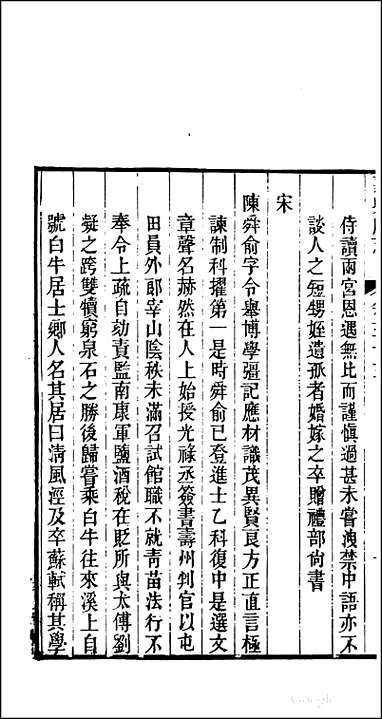 侍讀兩宮恩遇無比而謹慎過甚未嘗洩禁中語亦不
談人之短甥姪遺孤者婚嫁之卒贈禮部尚書
宋
陳舜俞字令舉博學彊記應材識茂異賢良方正直言極
諫制科擢第一是時舜俞已登進士乙科復中是選文
章聲名赫然在人上始授光祿丞簽書壽州判官以屯
田員外郎宰山陰秩未滿召試館職不就靑苗法行不
奉令上疏自劾責監南康軍鹽酒稅在貶所與太傅劉
凝之跨雙犢窮泉石之勝後歸嘗乘白牛往來溪上自
號白牛居士鄉人名其居曰淸風涇及卒蘇軾稱其學